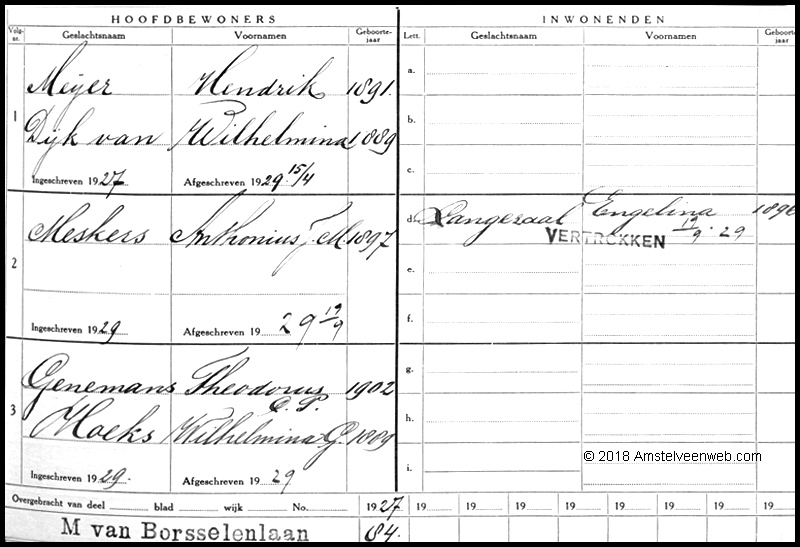 HOOFDBEWONERS
Volg-nr. Geslachtsnaam Voornamen Geboorte-jaar
1
Meijer Hendrik 1891.
Dijk van Wilhelmina 1889
Ingeschreven 1927 Afgeschreven 1929 15/4
2
Meskers Anthonius J. M. 1897
Ingeschreven 1929 Afgeschreven 19 29 19/9
3
Genemans Theodorus 1902
C. P.
Hoeks Wilhelmina G. 1889
Ingeschreven 1929. Afgeschreven 1929
INWONENDEN
Lett. Geslachtsnaam Voornamen Geboorte-jaar
a.
b.
c.
d. Langezaal Engelina
VERTROKKEN 19/9 . 29
e.
f.
g.
h.
i.
© 2018 Amstelveenweb.com
Overgebracht van deel blad wijk No. 1927 19 19 19 19 19 19 19 19 19
M van Borsselenlaan 84.